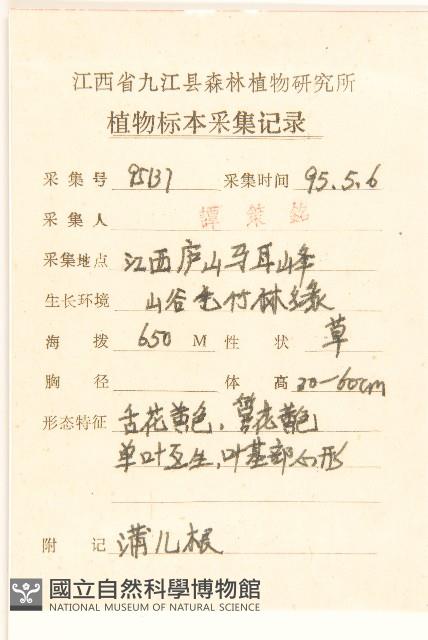 江西省九江县森林植物研究所
植物标本采集记录
采集号 95137 采集时间 95.5.6
采集人 譚策銘
采集地点 江西庐山马耳山峰
生长环境 山谷毛竹林缘
海拨 650 M 性状 草
胸径 体高 30-60cm
形态特征 舌花黄色，管花黄色
单叶互生，叶基部心形
附记 蒲儿根
國立自然科學博物館
NATIONAL MUSEUM OF NATURAL SCIENCE